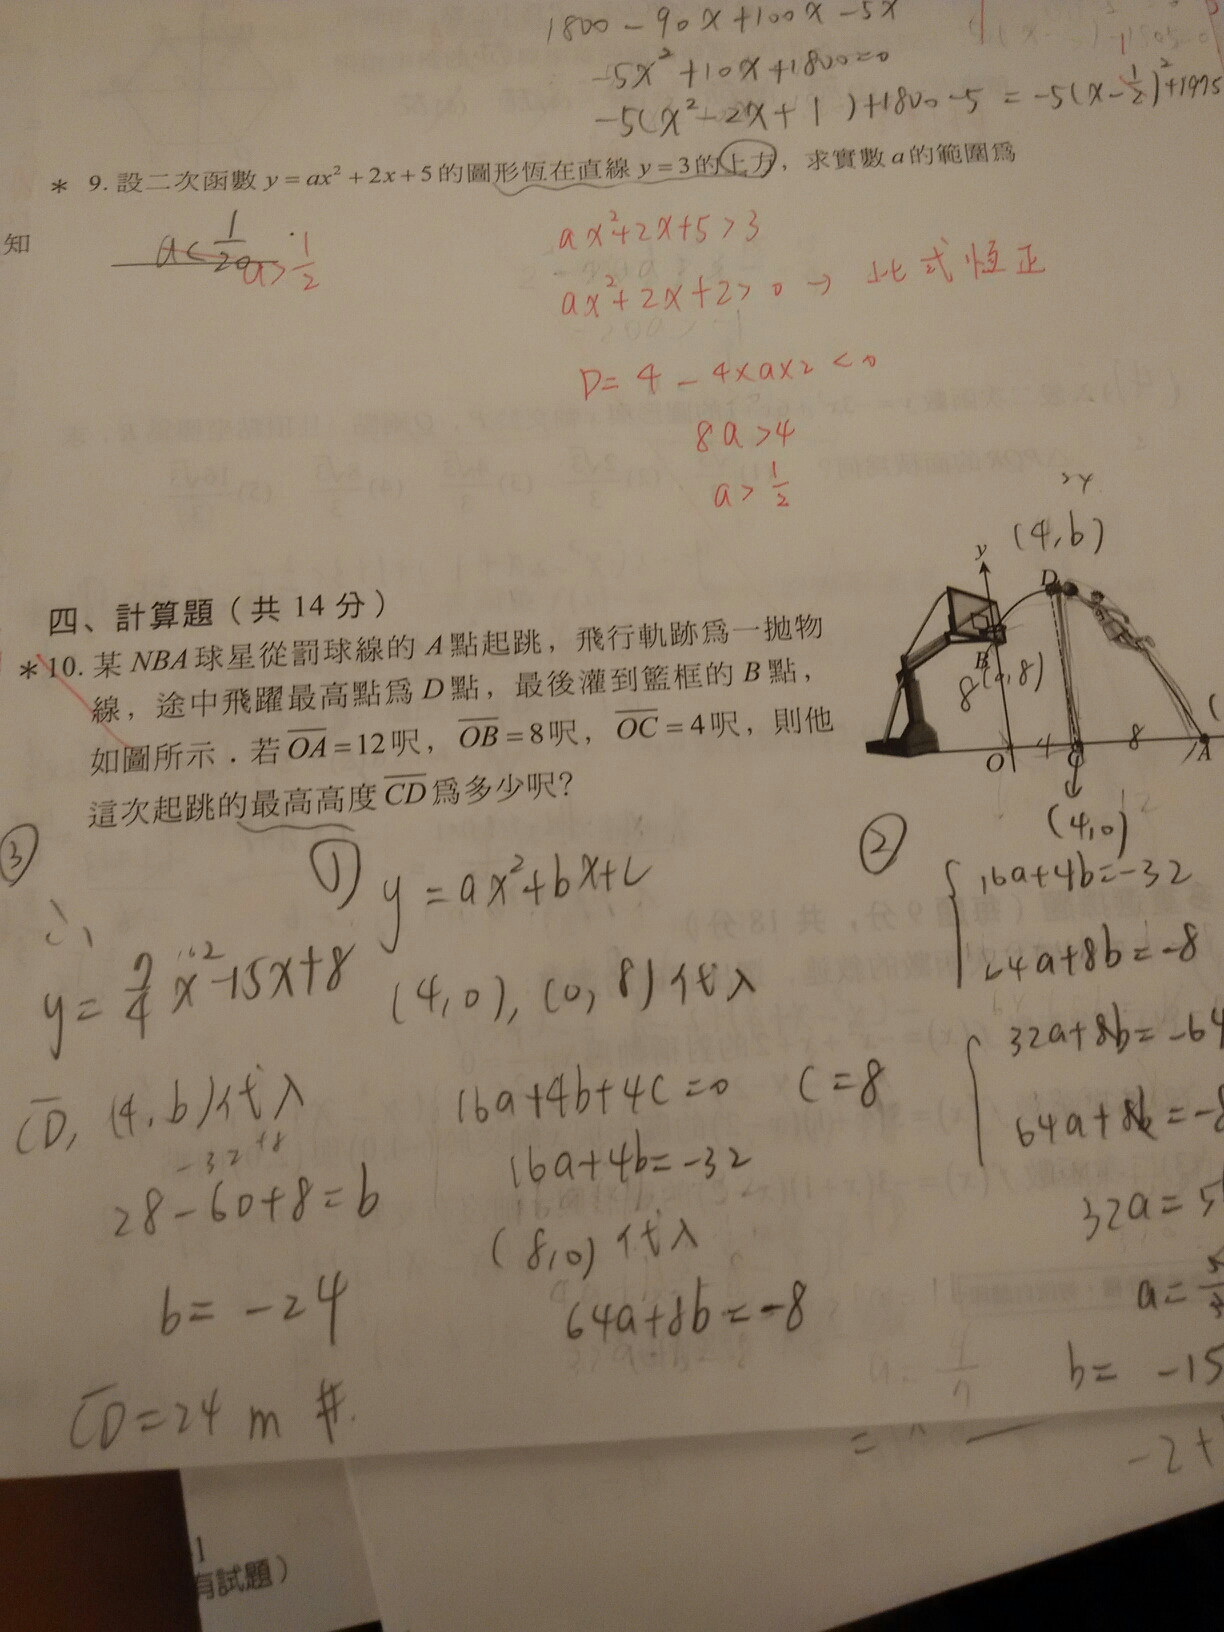 1800-90x+100x-5x
-5x²+10x+1800=0
-5(x²-2x+1)+1800-5=-5(x-1/2)²+1975
* 9. 設二次函數 y=ax²+2x+5 的圖形恆在直線 y=3 的上方，求實數 a 的範圍為
知
a>1/2
ax²+2x+5>3
ax²+2x+2>0→此式恆正
D=4-4×a×2<0
8a>4
a>1/2
四、計算題（共 14 分）
*10. 某 NBA 球星從罰球線的 A 點起跳，飛行軌跡為一拋物
線，途中飛躍最高點為 D 點，最後灌到籃框的 B 點，
如圖所示．若 OA=12 呎，OB=8 呎，OC=4 呎，則他
這次起跳的最高高度 CD 為多少呎?
(4,b)
y
D
B
(0,8)
8
O
4
C
8
A
(4,0)
12
①
y=ax²+bx+c
(4,0), (0,8)代入
16a+4b+4c=0 c=8
16a+4b=-32
(8,0)代入
64a+8b=-8
②
16a+4b=-32
64a+8b=-8
32a+8b=-64
64a+8b=-8
32a=5
a=
b= -15
③
∴
y=7/4x²-15x+8
CD, (4,b)代入
-32+8
28-60+8=b
b=-24
CD=24 m #.
-2+
1
有試題）